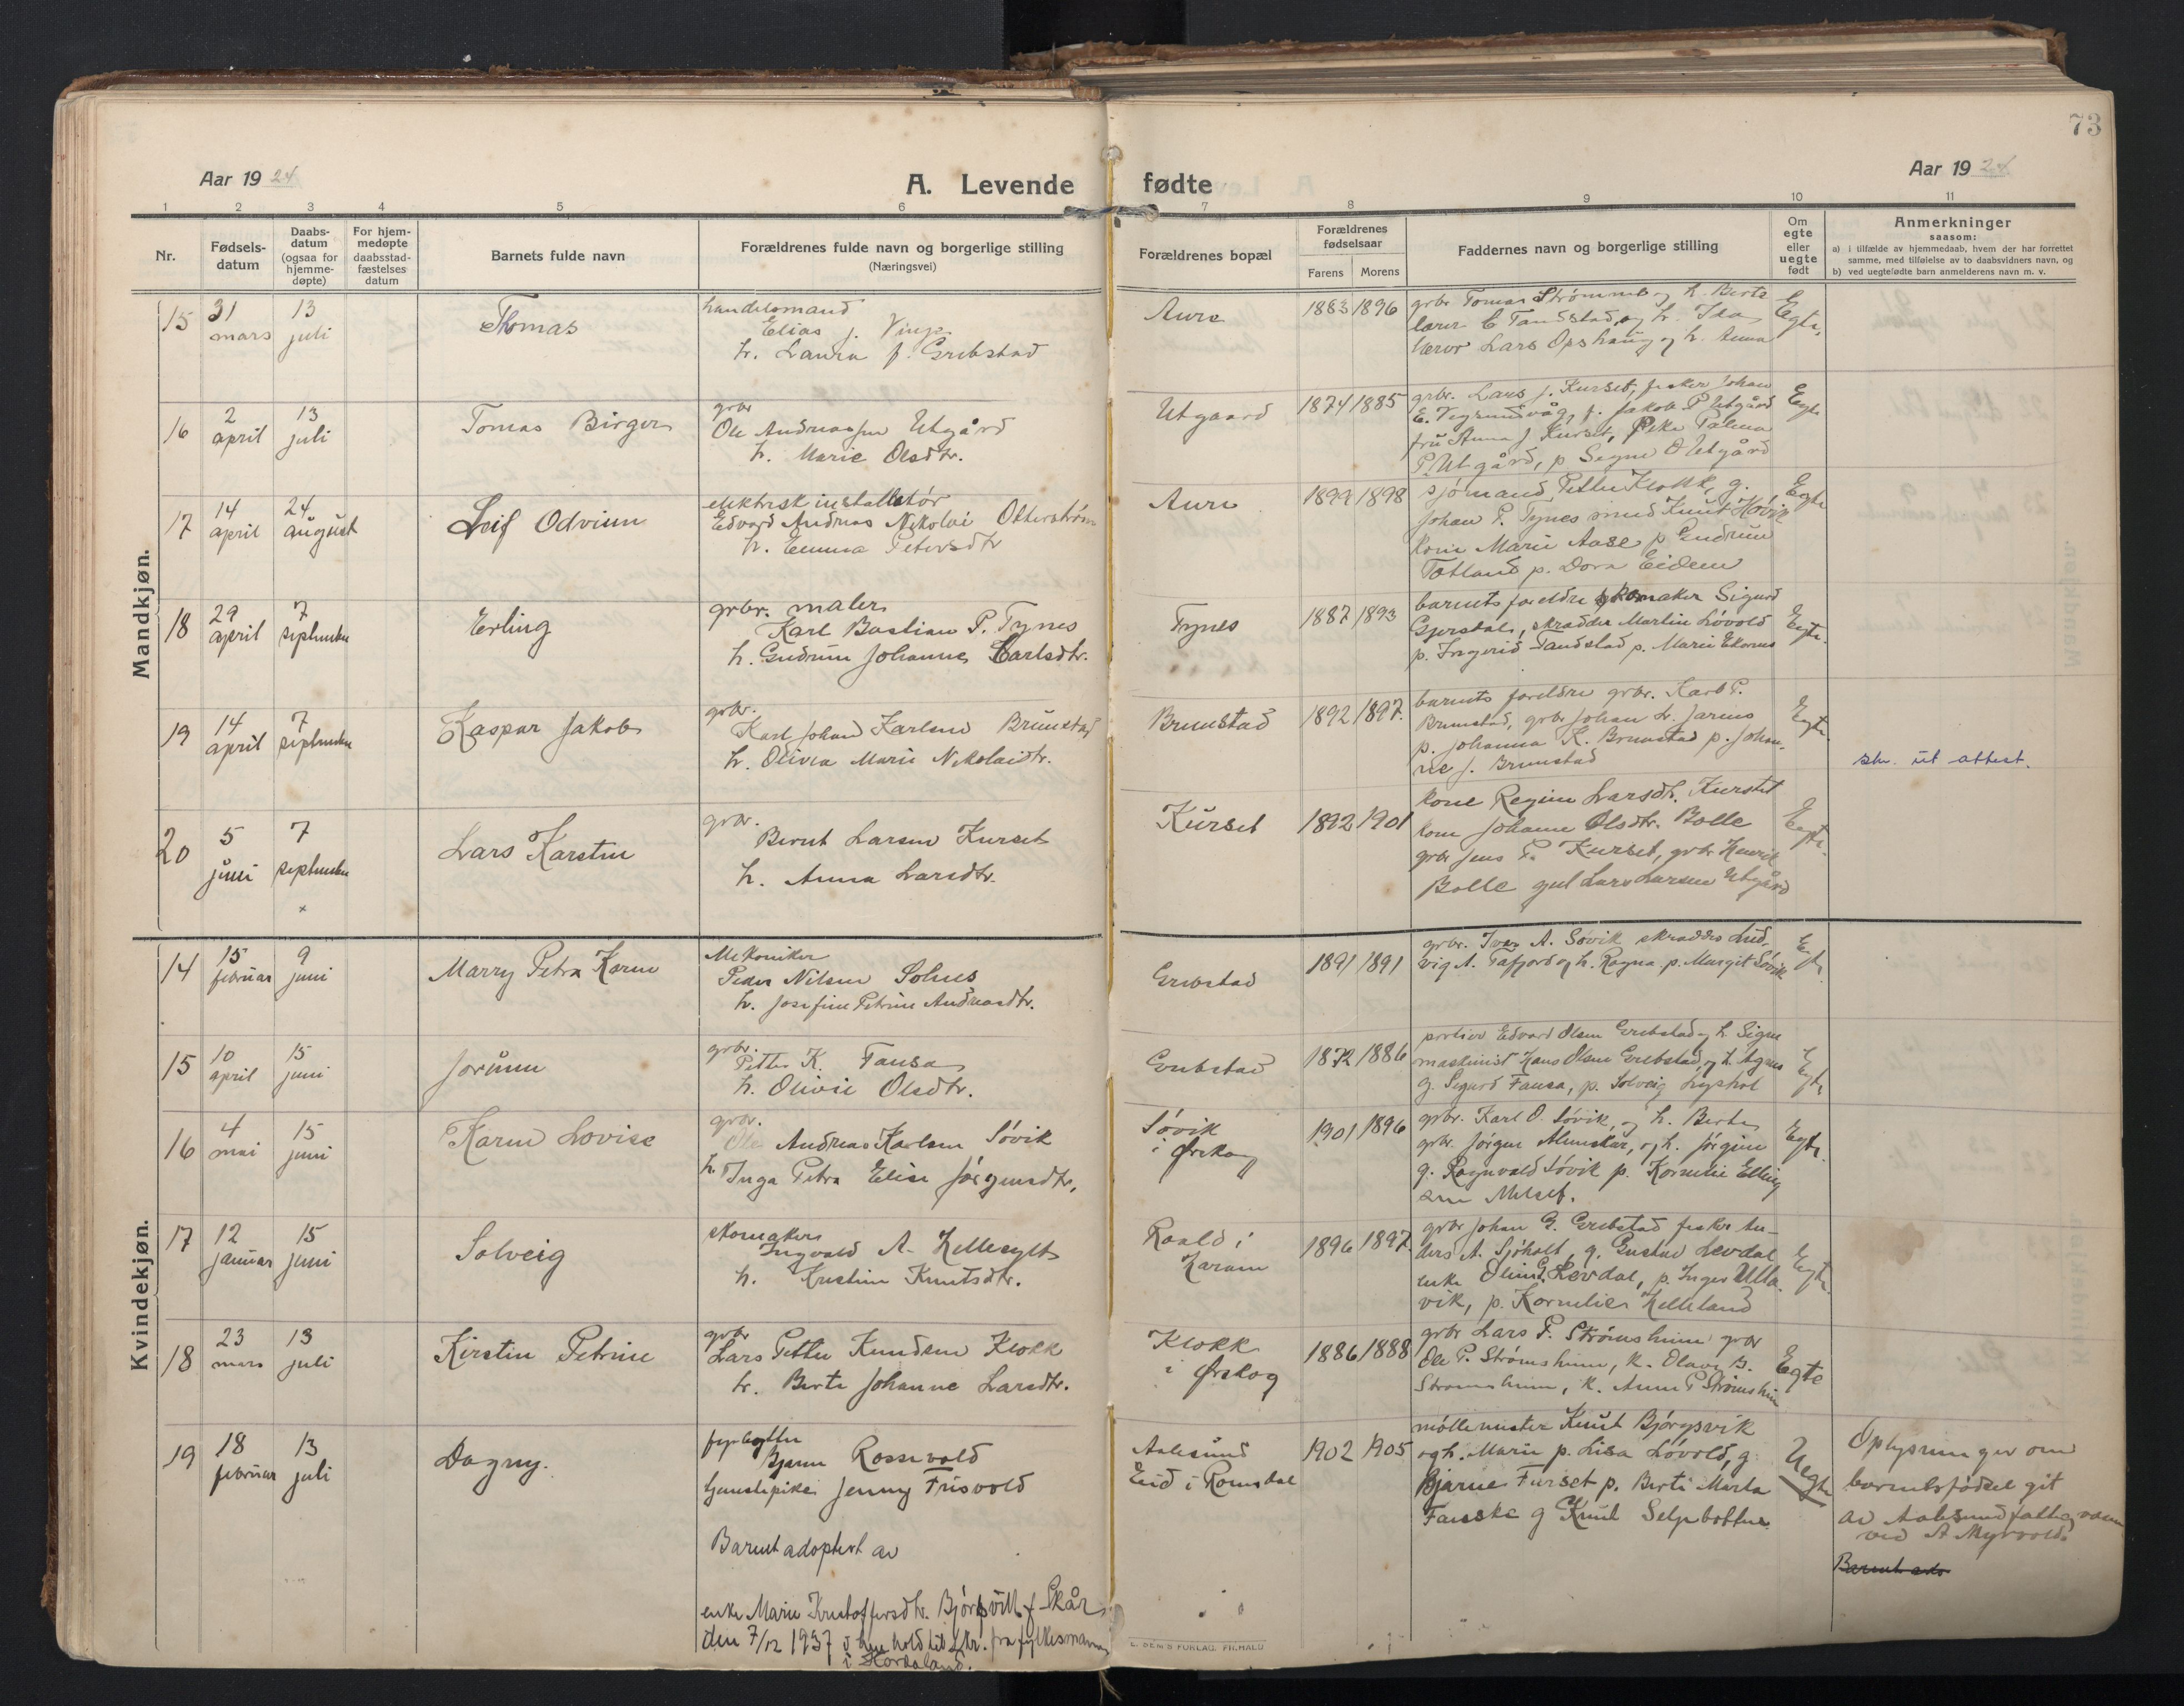 73
Aar 1924
A. Levende fødte
Aar 1924
1 2 3 4 5 6 7 8 9 10 11
Nr.
Fødsels-
datum
Daabs-
datum
(ogsaa for
hjemme-
døpte)
For hjem-
medøpte
daabsstad-
fæstelses
datum
Barnets fulde navn
Forældrenes fulde navn og borgerlige stilling
(Næringsvei)
Forældrenes bopæl
Forældrenes
fødselsaar
Farens Morens
Faddernes navn og borgerlige stilling
Om
egte
eller
uegte
født
Anmerkninger
saasom:
a) i tilfælde av hjemmedaab, hvem der har forrettet
samme, med tilføielse av to daabsvidners navn, og
b) ved uegtefødte barn anmelderens navn m. v.
Mandkjøn.
15 31 mars 13 juli
Thomas
handelsmand
Elias J.
h. Laura f. Grebstad
Aure
1883 1896
grbr. Tomas Strømme og h. Berte
lærer C Tandstad og h. Ida
Lars Opshaug og h. Anna
Egte.
16 2 april 13 juli
Tomas Birger
grbr
Ole Andreassen Utgård
h. Marie Olsdtr.
Utgaard
1874 1885
grbr. Lars J. Kurset, fisker Johan
E. Vegsundvåg, f. Jakob P Utgård
fru Anna J Kurset, Pike Palma
P. Utgård, p Signe O Utgård
Egte
17 14 april 24 august
Leif Odvinn
elektrisk installatór
Edvard Andreas Nikolai Otterstrøm
h. Emma Petersdtr
Aure
1899 1898
sjómand Petter Klokk, g.
Johan P. Tynes Knut Hóvik
kone Marie Aase p Gudrun
Totland p. Dora Eidem
Egte
18 29 april 7 september
Erling
grbr. maler
Karl Bastian P. Tynes
h. Gudrun Johanne Carlsdtr.
Tynes
1887 1893
barnets foreldre skomaker Sigurd
Gjerstal, skrædder Martin Lóvold
p. Ingerid Tandstad p. Marie Ekornes
Egte.
19 14 april 7 september
Kaspar Jakob
grbr.
Karl Johan Karlsen Brunstad
h. Olivia Marie Nikolaidtr.
Brunstad
1892 1897.
barnets foreldre grbr. Karl P.
Brunstad, grbr Johan L. Jarnes
p. Johanna K. Brunstad p. Johan-
ne J. Brunstad
Egte.
skr. ut attest.
20 5 juni 7 september
Lars Karsten
grbr.
Bernt Larsen Kurset
h. Anna Larsdtr.
Kurset
1892 1901
kone Regine Larsdtr. Kurset
kone Johanne Olsdtr. Bolle
grbr Jens P. Kurset, grbr Henrik
Bolle gul Lars Larsen Utgård
Egte.
Kvindekjøn.
14 15 februar 9 juni
Marry Petra Karen
Mekaniker
Peder Nilsen Solnes
h. Josefine Petrine Andreasdtr.
Grebstad
1891 1891
grbr. Ivar A. Sóvik skrædder Lud-
vig A. Tafjord og h. Ragna p. Margit Sóvik
Egte
15 10 april 15 juni
Jorunn
grbr.
Petter K. Fausa
h. Olivie Olsdtr.
Grebstad
1872 1886
Edvard Olsen Grebstad og h. Signe
maskinist Hans Olsen Grebstad og h. Agnes
g. Sigurd Fausa, p. Solveig Lyshol
Egte
16 4 mai 15 juni
Karen Lovise
grbr.
Ole Andreas Karlsen Sóvik
h. Inga Petra Elise Jórgensdtr.
Sóvik
i Ørskog
1901 1896
grbr. Karl O. Sóvik, og h. Berte
grbr. Jórgen Almskår, og h. Jórgine
g. Ragnvald Sóvik p. Kornelie Elling
sen Melset.
Egte.
17 12 januar 15 juni
Solveig
skomaker
Ingvald A. Hellesylt
h. Kristine Knutsdtr.
Roald i
Haram
1896 1897.
grbr Johan G. Grebstad fisker An-
ders A. Sjóholt, g. Gustav Levdal
enke Oline G. Levdal, p. Inger Ulla
vik, p. Kornelie Helleland
Egte.
18 23 mars 13 juli
Kirsten Petrine
grbr
Lars Petter Knudsen Klokk
h. Berte Johanne Larsdtr.
Klokk
i Ørskog
1886 1888
grbr Lars P. Strómsheim grbr
Ole P. Strómsheim, K. Olave B.
Stromsheim, K. Anne P Strómsheim
Egte
19 18 februar 13 juli
Dagny.
fyrbøter
Bjarne Rossevold
tjenestepike Jenny Frisvold
Barnet adoptert av
enke Marie Kristoffersdtr. Bjórgsvik f. Skår
den 7/12 1937 i henhold til skr. fra fylkesmannen
i Hordaland.
Aalesund
Eid i Romsdal
1902 1905
móllemester Knut Bjórgsvik
og h. Marie p. Lisa Lóvold, g.
Bjarne Furset p. Berte Marta
Fauske g Knut Seljebotten
Uegte
Oplysninger om
barnets fódsel git
av Aalesund fattigvæsen
ved A Myrvold.
Barnet ado
E. SEM'S FORLAG. FR.HALD